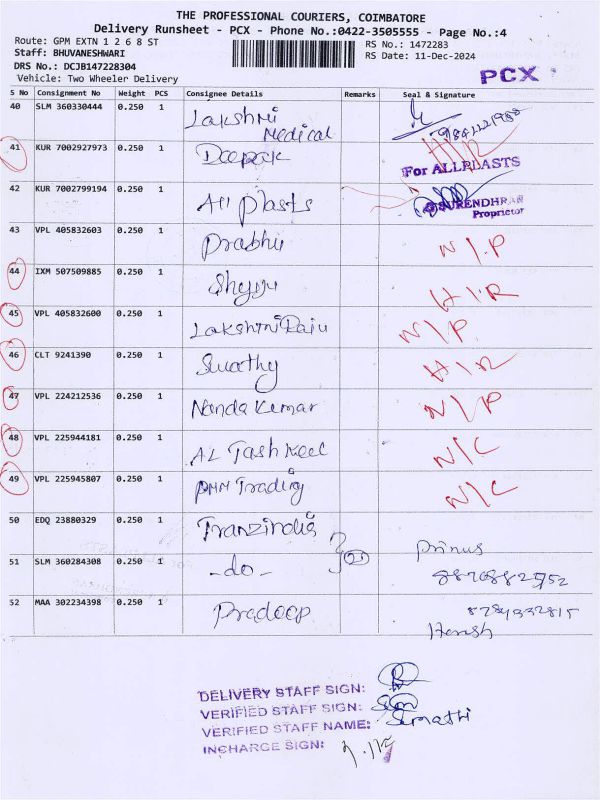 THE PROFESSIONAL COURIERS, COIMBATORE
Delivery Runsheet - PCX - Phone No.:0422-3505555 - Page No.:4
Route: GPM EXTN 1 2 6 8 ST
RS No.: 1472283
Staff: BHUVANESHWARI
RS Date: 11-Dec-2024
DRS No.: DCJB147228304
Vehicle: Two Wheeler Delivery
PCX
S No Consignment No Weight PCS Consignee Details Remarks Seal & Signature
40 SLM 360330444 0.250 1 Lakshmi Medical
41 KUR 7002927973 0.250 1 Deepak H/R
For ALLPLASTS
42 KUR 7002799194 0.250 1 All Plasts
SURENDHRAN
Proprietor
43 VPL 405832603 0.250 1 Prabhu N/P
44 IXM 507509885 0.250 1 Shyju H/R
45 VPL 405832600 0.250 1 Lakshmi Raju N/P
46 CLT 9241390 0.250 1 Swathy H/R
47 VPL 224212536 0.250 1 Nanda Kumar N/P
48 VPL 225944181 0.250 1 AL Tashkeel N/C
49 VPL 225945807 0.250 1 Trading N/C
50 EDQ 23880329 0.250 1 Tranzindia
51 SLM 360284308 0.250 1 -do-
52 MAA 302234398 0.250 1 Pradeep
DELIVERY STAFF SIGN:
VERIFIED STAFF SIGN:
VERIFIED STAFF NAME: Sumathi
INCHARGE SIGN: